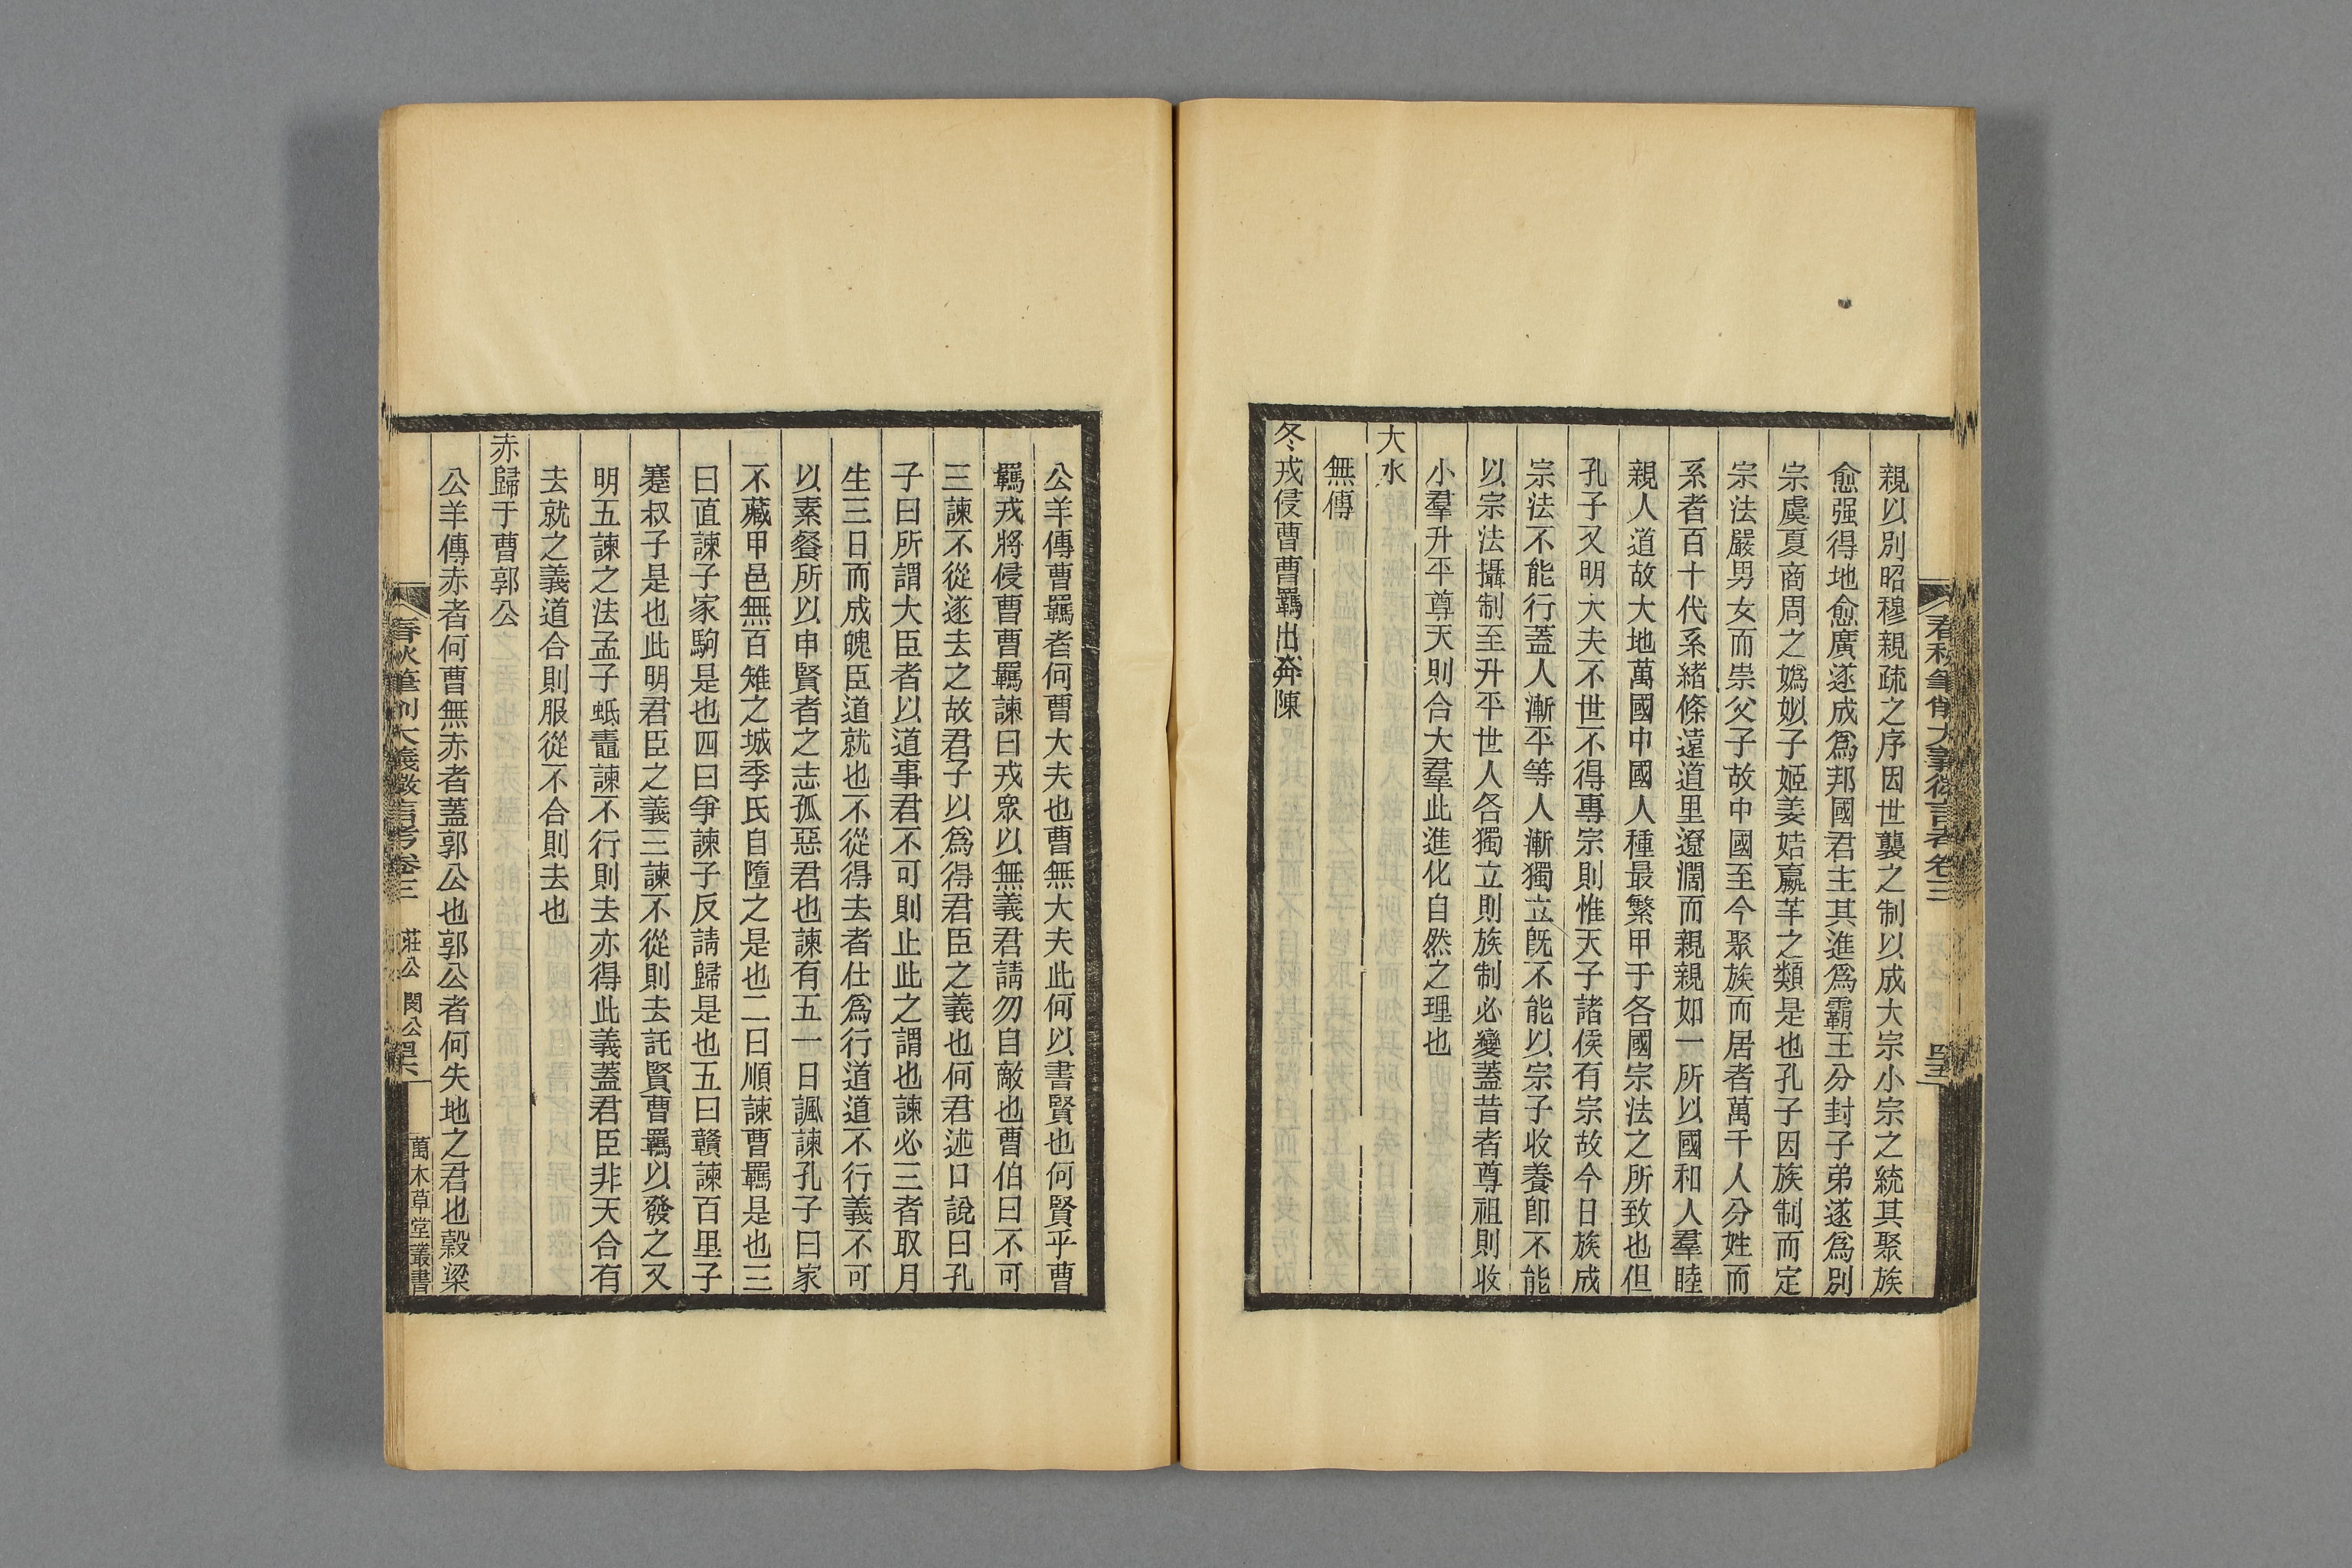 春秋筆削大義微言考卷三
親以別昭穆親疏之序因世襲之制以成大宗小宗之統其聚族
愈强得地愈廣遂成爲邦國君主其進爲霸王分封子弟遂爲別
宗虞夏商周之嬀姒子姬姜姞嬴芉之類是也孔子因族制而定
宗法嚴男女而崇父子故中國至今聚族而居者萬千人分姓而
系者百十代系緒條遠道里遼濶而親親如一所以國和人羣睦
親人道故大地萬國中國人種最繁甲于各國宗法之所致也但
孔子又明大夫不世不得專宗則惟天子諸侯有宗故今日族成
宗法不能行蓋人漸平等人漸獨立旣不能以宗子收養卽不能
以宗法攝制至升平世人各獨立則族制必變蓋昔者尊祖則收
小羣升平尊天則合大羣此進化自然之理也
大水
無傳
冬戎侵曹曹羈出奔陳
公羊傳曹羈者何曹大夫也曹無大夫此何以書賢也何賢乎曹
羈戎將侵曹曹羈諫曰戎衆以無義君請勿自敵也曹伯曰不可
三諫不從遂去之故君子以爲得君臣之義也何君述口說曰孔
子曰所謂大臣者以道事君不可則止此之謂也諫必三者取月
生三日而成魄臣道就也不從得去者仕爲行道道不行義不可
以素餐所以申賢者之志孤惡君也諫有五一曰諷諫孔子曰家
不藏甲邑無百雉之城季氏自墮之是也二曰順諫曹羈是也三
曰直諫子家駒是也四曰爭諫子反請歸是也五曰贛諫百里子
蹇叔子是也此明君臣之義三諫不從則去託賢曹羈以發之又
明五諫之法孟子蚳鼃諫不行則去亦得此義蓋君臣非天合有
去就之義道合則服從不合則去也
赤歸于曹郭公
公羊傳赤者何曹無赤者蓋郭公也郭公者何失地之君也穀梁
春秋筆削大義微言考卷三 莊公 閔公
萬木草堂叢書